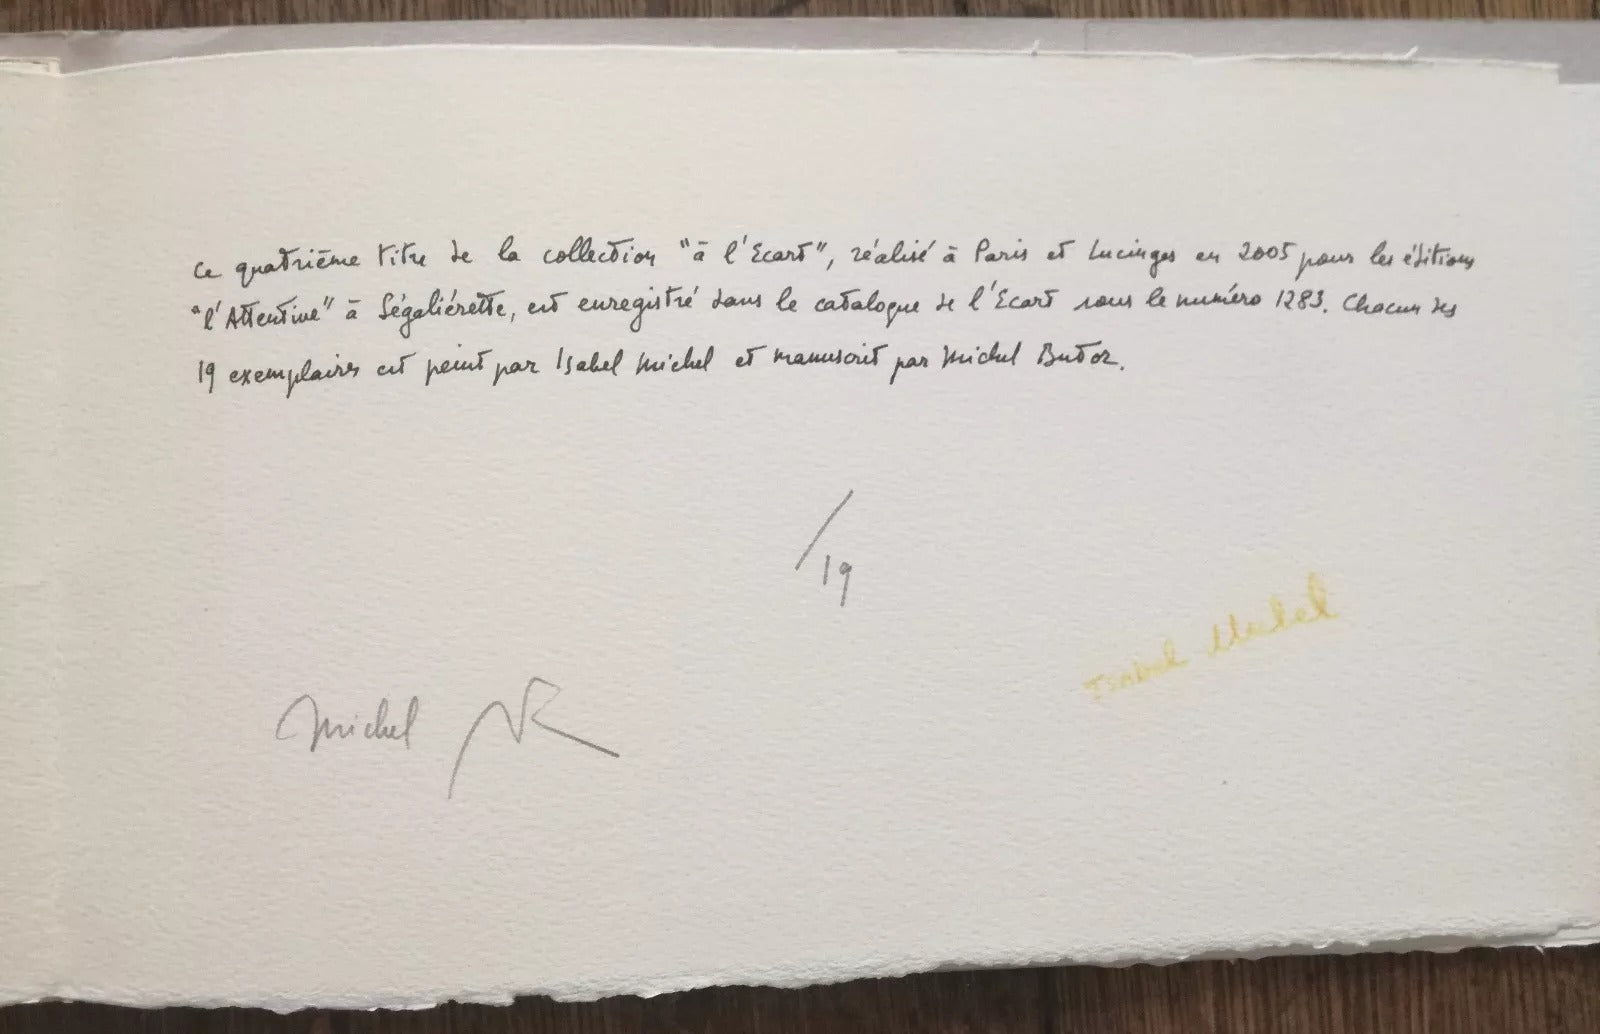 Ce quatrième titre de la collection "à l'Ecart", réalisé à Paris et Lucinges en 2005 pour les éditions
"l'Attentive" à Ségaliérette, est enregistré dans le catalogue de l'Ecart sous le numéro 1283. Chacun des
19 exemplaires est peint par Isabel Michel et manuscrit par Michel Butor.
/19
Isabel Michel
Michel